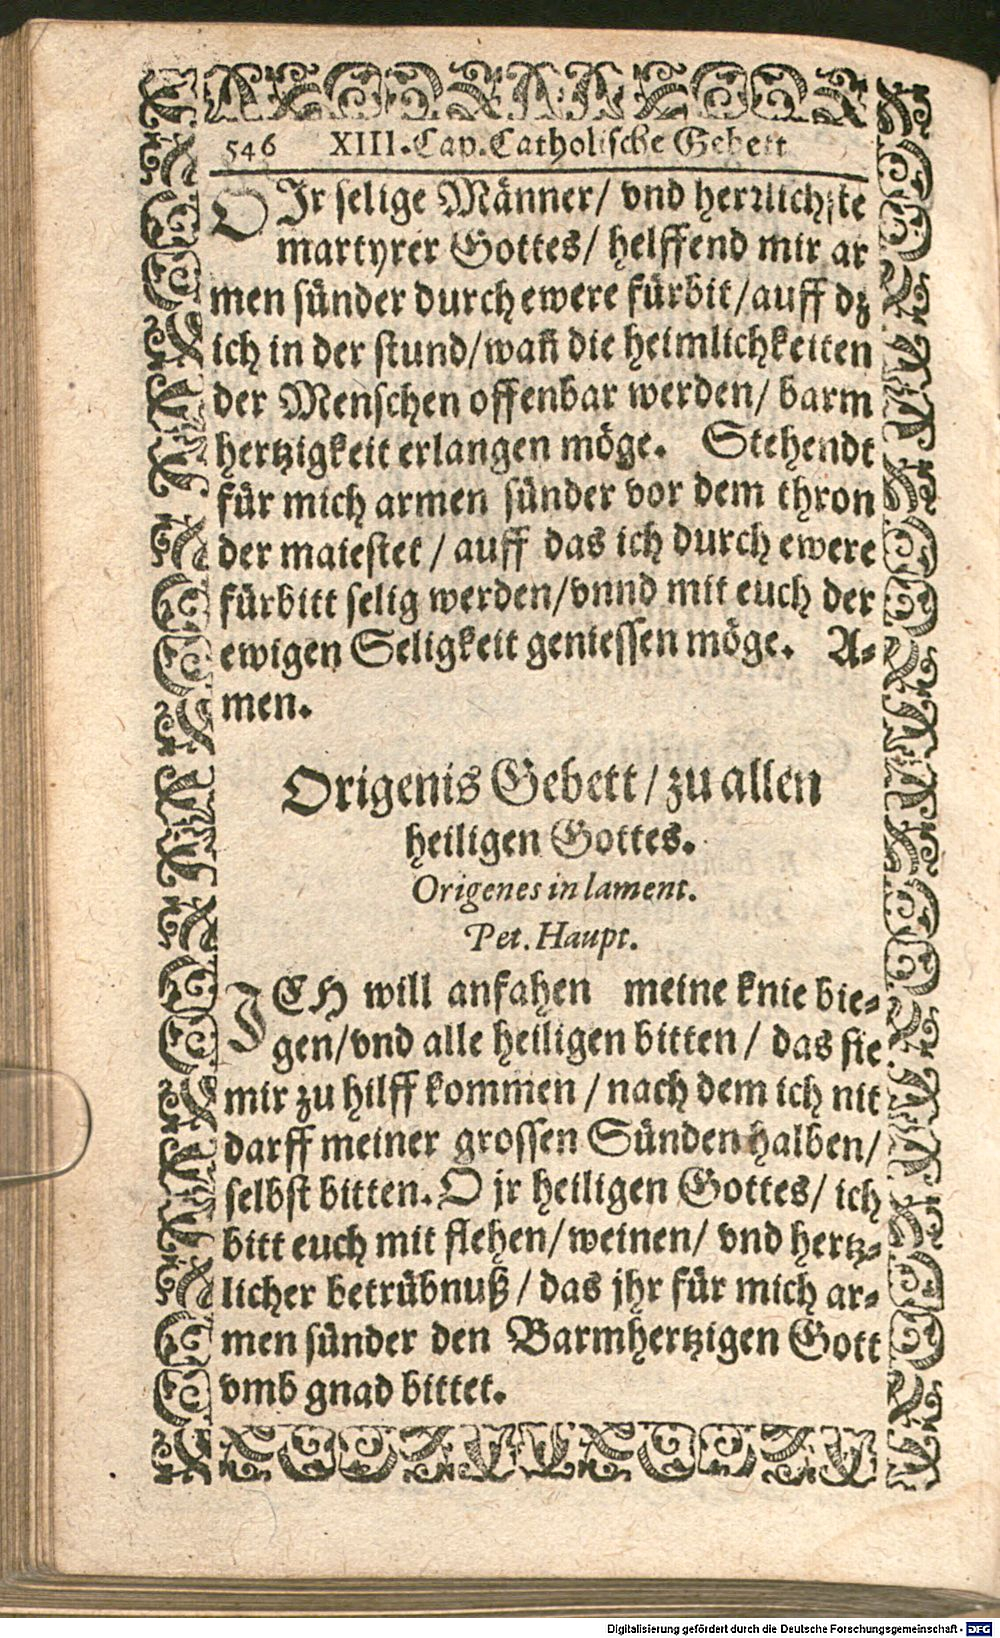 546 XIII. Cap. Catholische Gebett
O Jr selige Männer/ vnd herꝛlichste
martyrer Gottes/ helffend mir ar
men sünder durch ewere fürbit/auff dz
ich in der stund/wañ die heimlichkeiten
der Menschen offenbar werden/ barm
hertzigkeit erlangen möge. Stehendt
für mich armen sünder vor dem thron
der maiestet/ auff das ich durch ewere
fürbitt selig werden/vnnd mit euch der
ewigen Seligkeit geniessen möge. A-
men.
Origenis Gebett/zu allen
heiligen Gottes.
Origenes in lament.
Pet. Haupt.
JCH will anfahen meine knie bie-
gen/vnd alle heiligen bitten/ das sie
mir zu hilff kommen/nach dem ich nit
darff meiner grossen Sünden halben/
selbst bitten. O jr heiligen Gottes/ ich
bitt euch mit flehen/weinen/ vnd hertz-
licher betrübnuß/das jhr für mich ar-
men sünder den Barmhertzigen Gott
vmb gnad bittet.
Digitalisierung gefördert durch die Deutsche Forschungsgemeinschaft - DFG